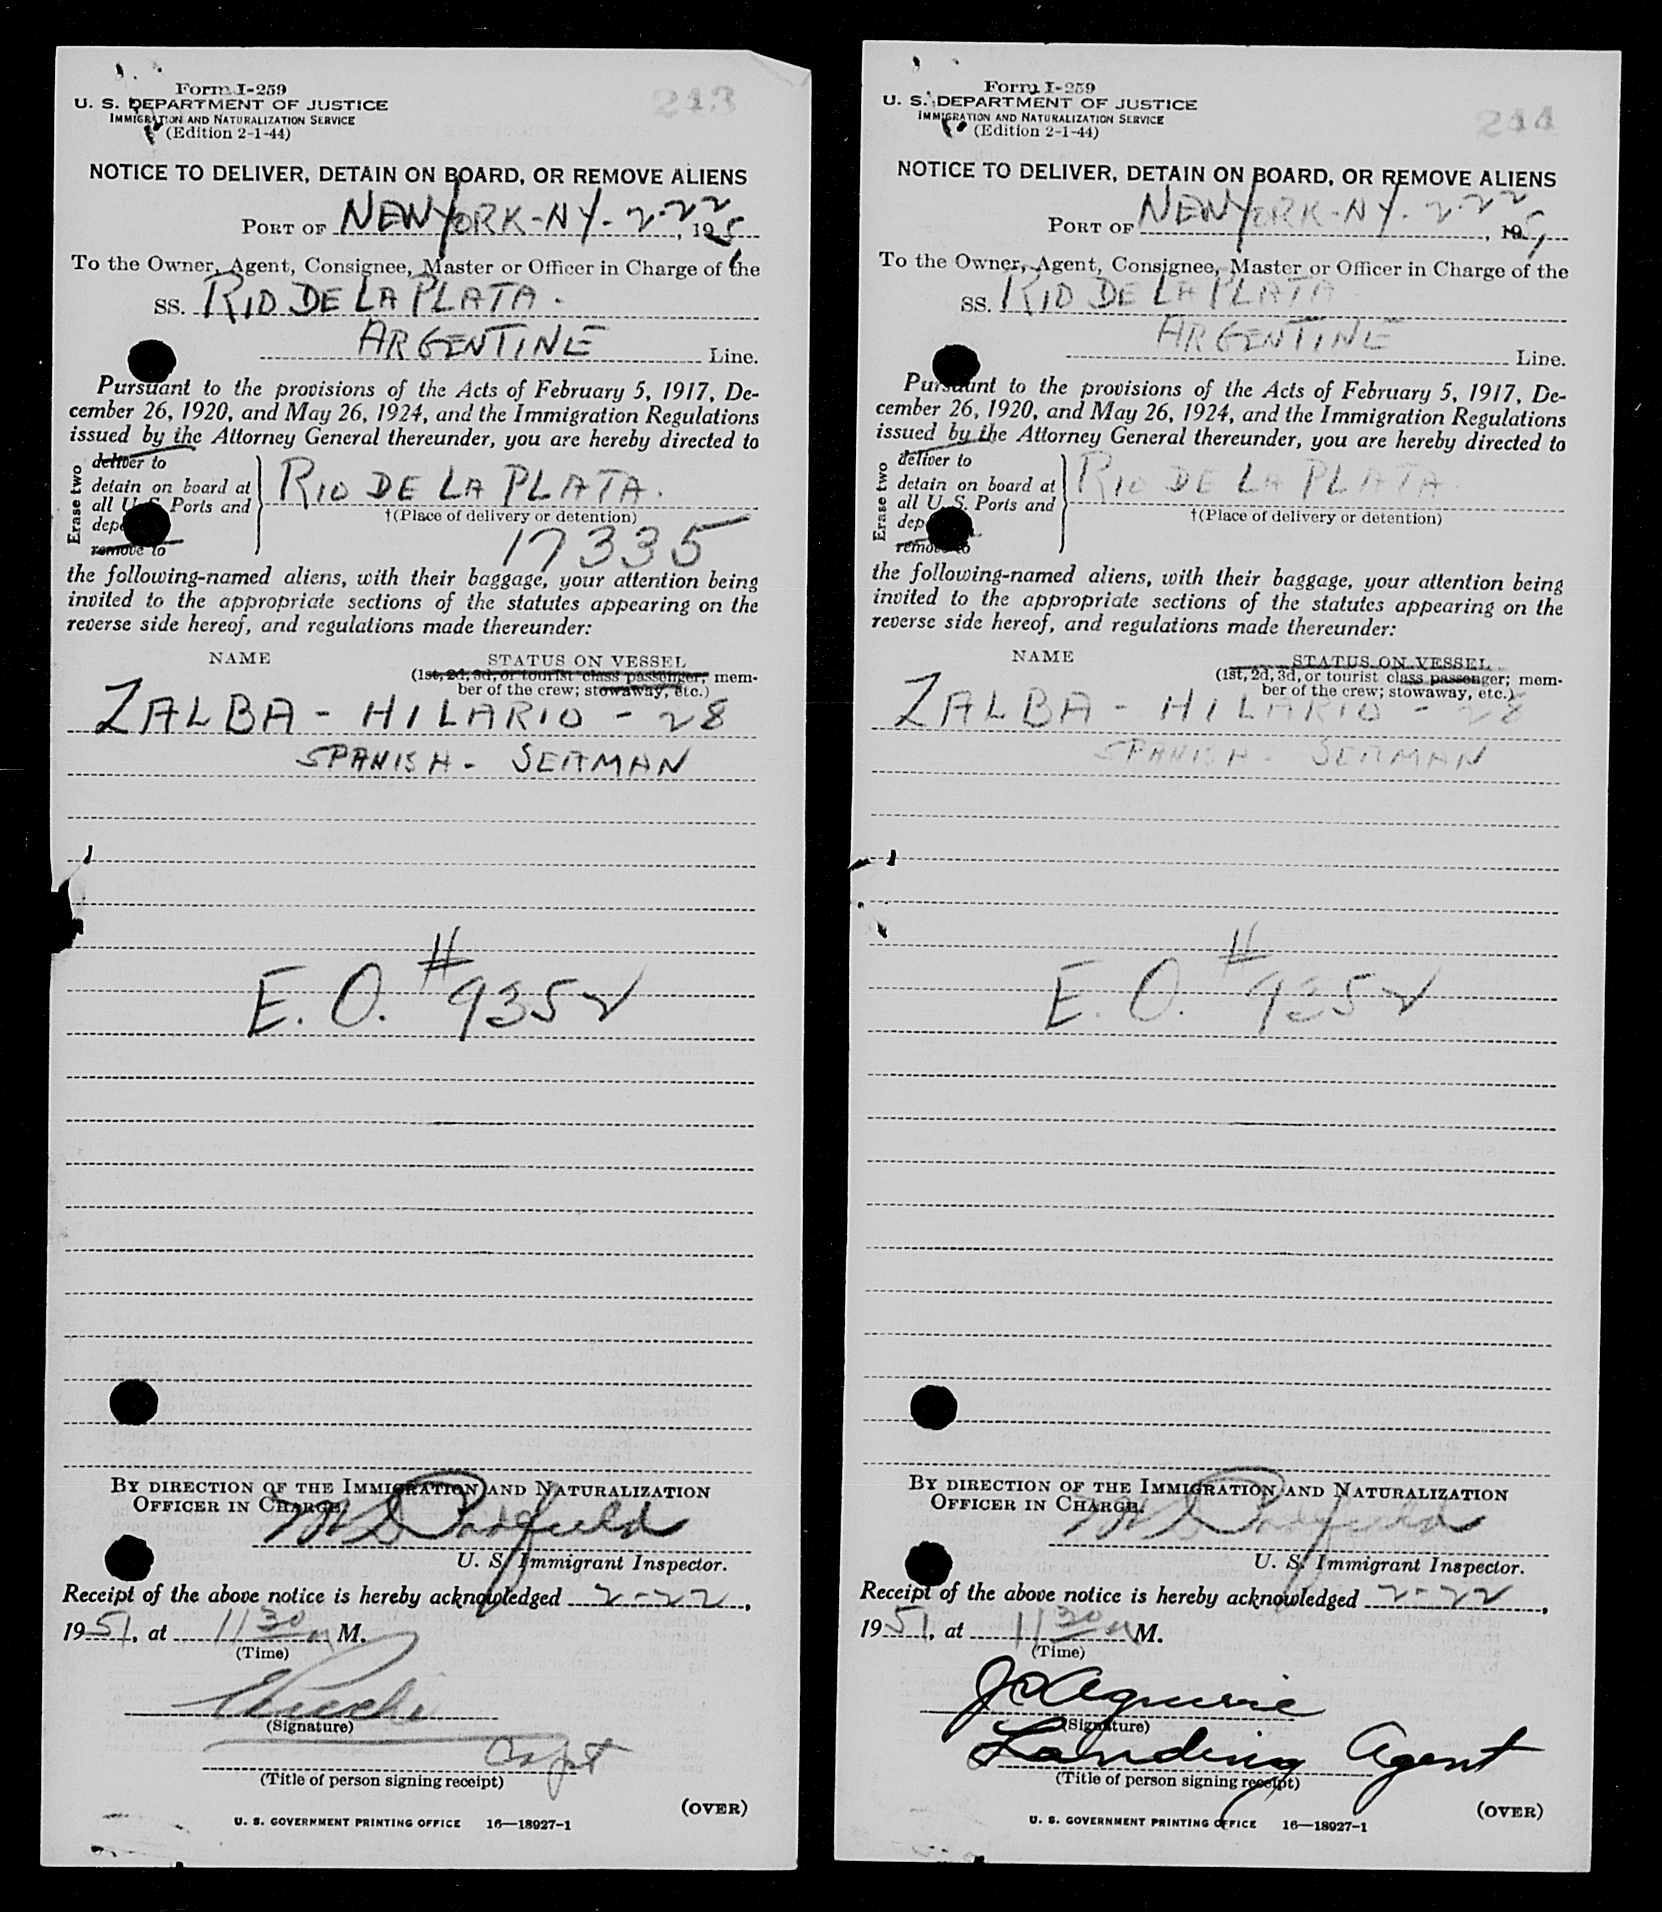 Form I-259
U. S. DEPARTMENT OF JUSTICE
IMMIGRATION AND NATURALIZATION SERVICE
(Edition 2-1-44)
243
NOTICE TO DELIVER, DETAIN ON BOARD, OR REMOVE ALIENS
PORT OF NEW YORK-NY- 2-22, 1951
To the Owner, Agent, Consignee, Master or Officer in Charge of the
SS. RIO DE LA PLATA.
ARGENTINE Line.
Pursuant to the provisions of the Acts of February 5, 1917, De-
cember 26, 1920, and May 26, 1924, and the Immigration Regulations
issued by the Attorney General thereunder, you are hereby directed to
Erase two
deliver to
detain on board at
all U. S. Ports and
remove to
RIO DE LA PLATA.
†(Place of delivery or detention)
17335
the following-named aliens, with their baggage, your attention being
invited to the appropriate sections of the statutes appearing on the
reverse side hereof, and regulations made thereunder:
NAME STATUS ON VESSEL
(1st, 2d, 3d, or tourist class passenger; mem-
ber of the crew; stowaway, etc.)
ZALBA - HILARIO - 28
SPANISH - SEAMAN
E. O. #9352
BY DIRECTION OF THE IMMIGRATION AND NATURALIZATION
OFFICER IN CHARGE.
U. S. Immigrant Inspector.
Receipt of the above notice is hereby acknowledged 2-22,
1951, at 11 30 A M.
(Time)
(Signature)
Capt
(Title of person signing receipt)
(OVER)
U. S. GOVERNMENT PRINTING OFFICE 16—18927-1
Form I-259
U. S. DEPARTMENT OF JUSTICE
IMMIGRATION AND NATURALIZATION SERVICE
(Edition 2-1-44)
244
NOTICE TO DELIVER, DETAIN ON BOARD, OR REMOVE ALIENS
PORT OF NEW YORK-NY- 2-22, 1951
To the Owner, Agent, Consignee, Master or Officer in Charge of the
SS. RIO DE LA PLATA
ARGENTINE Line.
Pursuant to the provisions of the Acts of February 5, 1917, De-
cember 26, 1920, and May 26, 1924, and the Immigration Regulations
issued by the Attorney General thereunder, you are hereby directed to
Erase two
deliver to
detain on board at
all U. S. Ports and
remove to
RIO DE LA PLATA.
†(Place of delivery or detention)
the following-named aliens, with their baggage, your attention being
invited to the appropriate sections of the statutes appearing on the
reverse side hereof, and regulations made thereunder:
NAME STATUS ON VESSEL
(1st, 2d, 3d, or tourist class passenger; mem-
ber of the crew; stowaway, etc.)
ZALBA - HILARIO - 28
SPANISH - SEAMAN
E. O. #9352
BY DIRECTION OF THE IMMIGRATION AND NATURALIZATION
OFFICER IN CHARGE.
U. S. Immigrant Inspector.
Receipt of the above notice is hereby acknowledged 2-22,
1951, at 11 30 A M.
(Time)
Jo Aguirre
(Signature)
Landing Agent
(Title of person signing receipt)
(OVER)
U. S. GOVERNMENT PRINTING OFFICE 16—18927-1